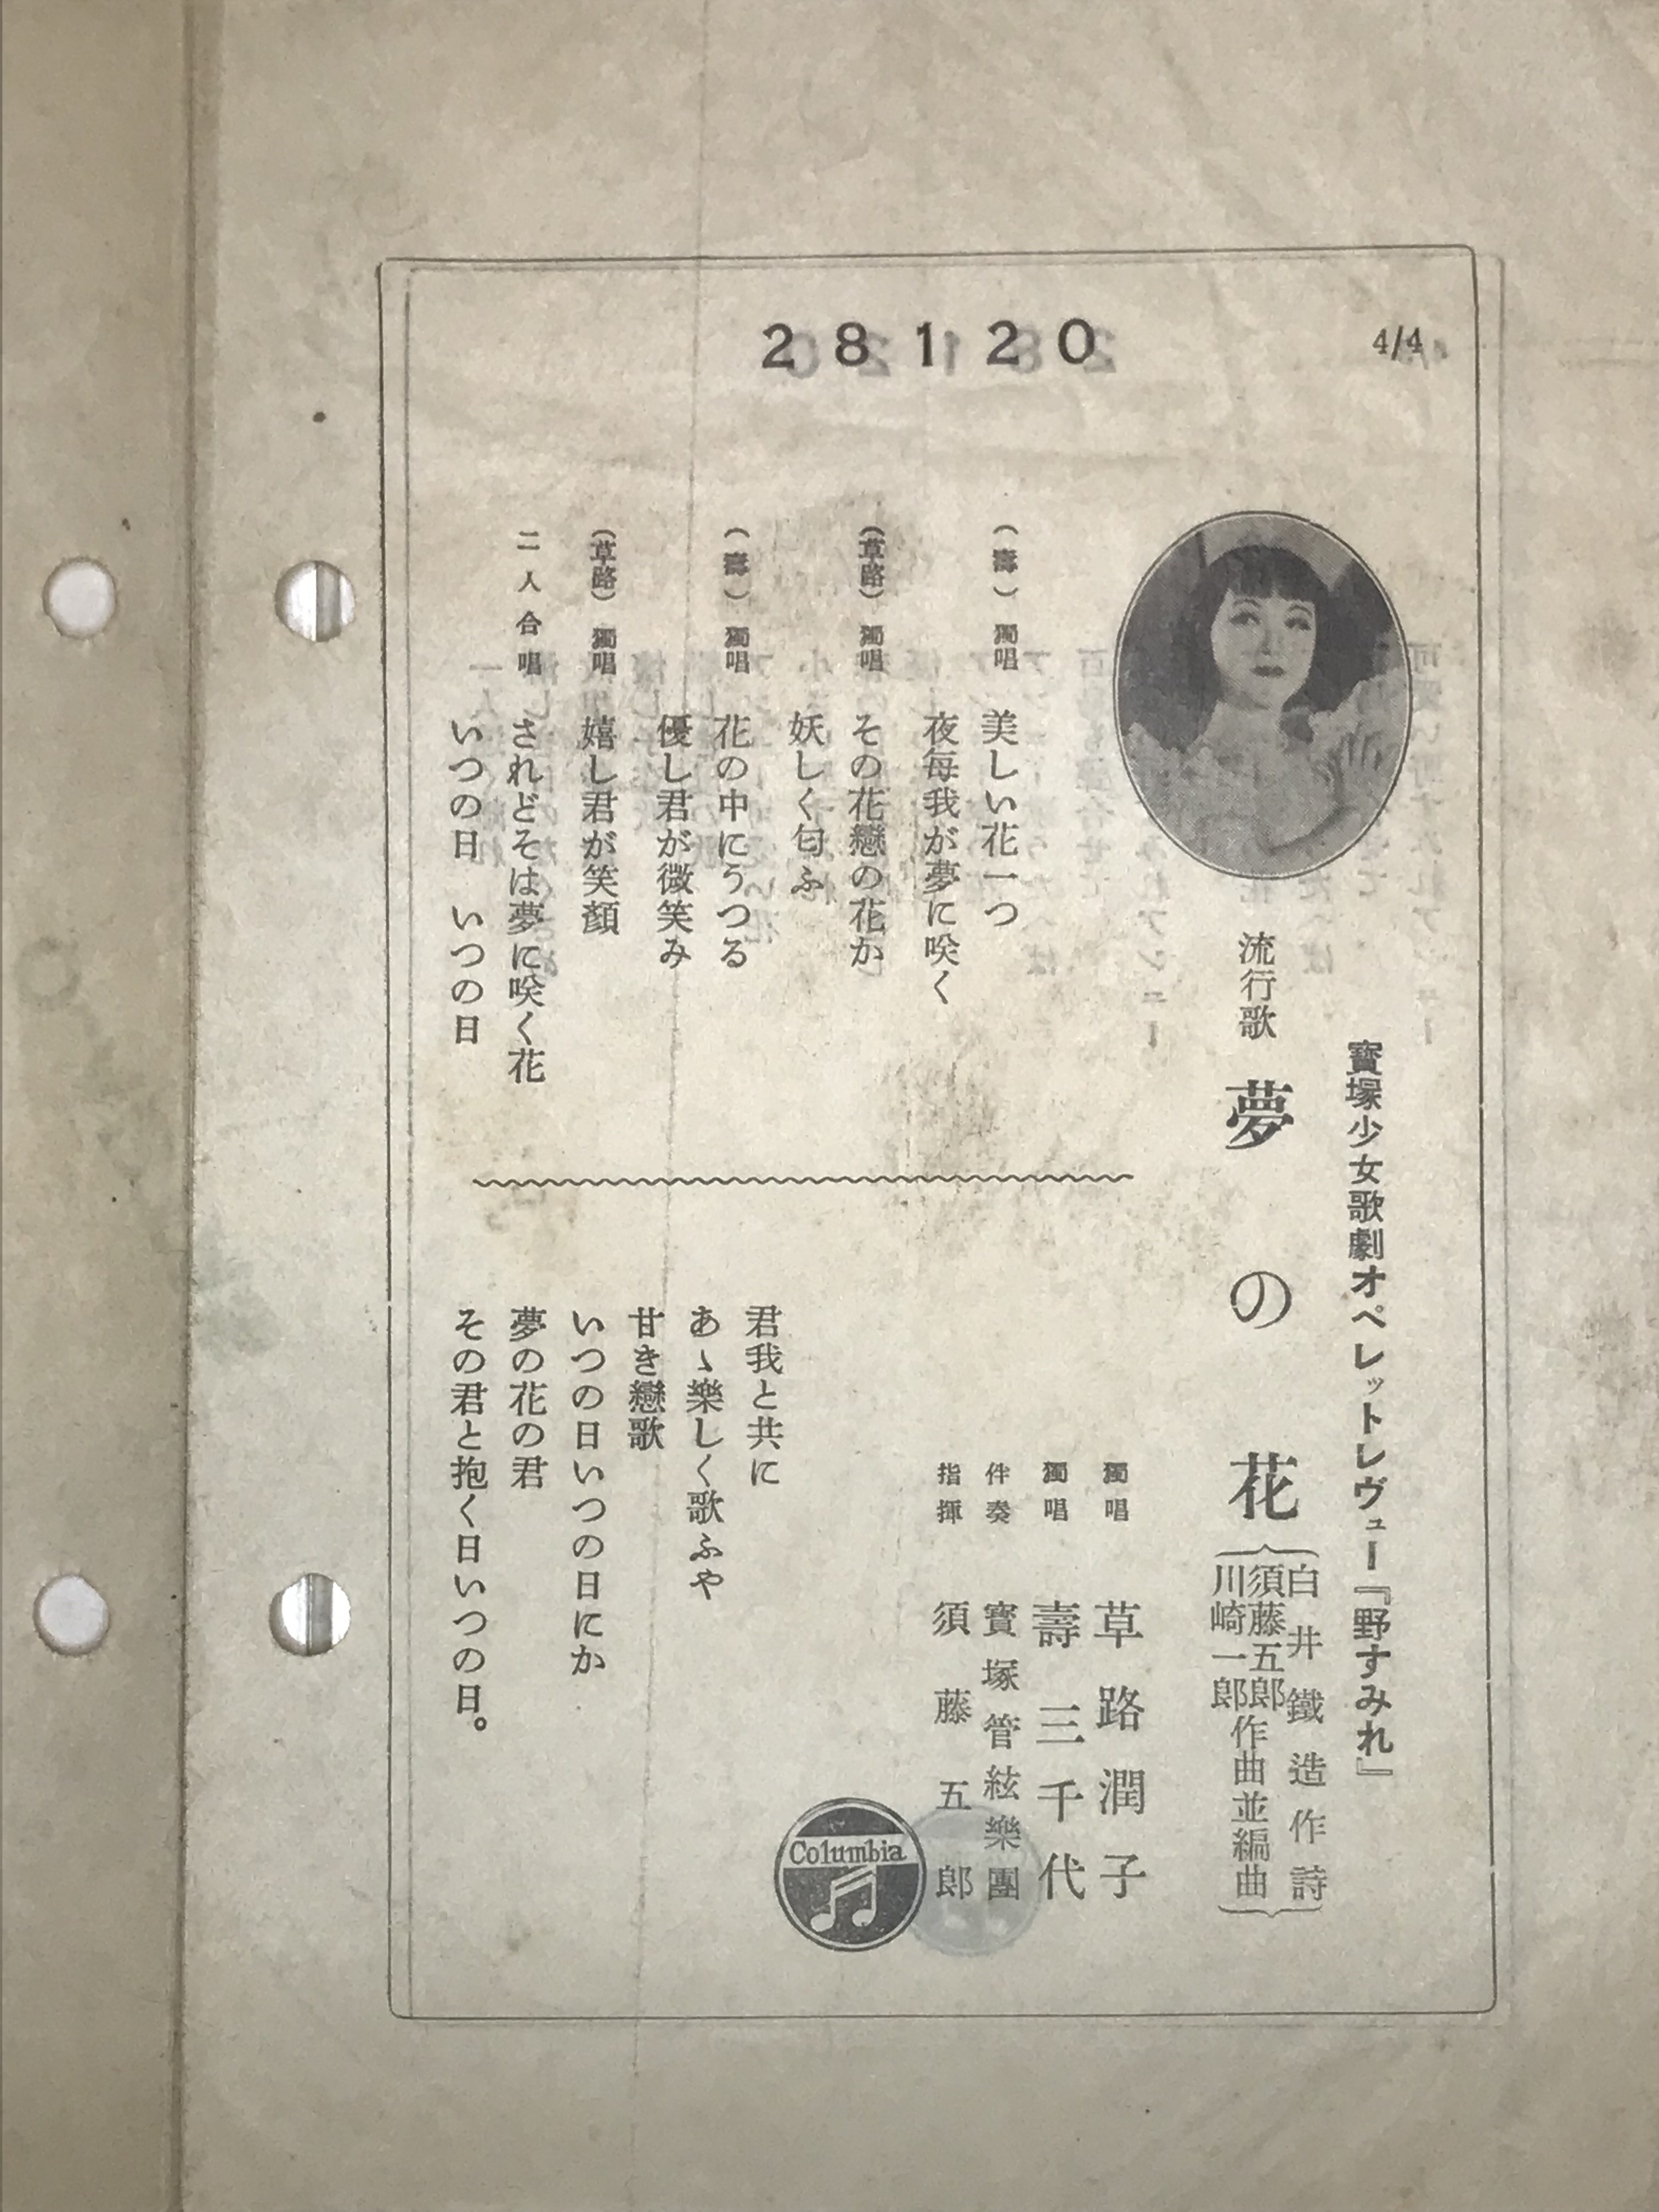 28120
4/4
寶塚少女歌劇オペレットレヴュー『野すみれ』
流行歌 夢の花
白井鐵造作詩
須藤五郎
川崎一郎
作曲並編曲
獨唱 草路潤子
獨唱 壽三千代
伴奏 寶塚管絃樂團
指揮 須藤五郎
(壽)獨唱 美しい花一つ
夜每我が夢に咲く
(草路)獨唱 その花戀の花か
妖しく匂ふ
(壽)獨唱 花の中にうつる
優し君が微笑み
(草路)獨唱 嬉し君が笑顏
二人合唱 されどそは夢に咲く花
いつの日 いつの日
君我と共に
あゝ樂しく歌ふや
甘き戀歌
いつの日いつの日にか
夢の花の君
その君と抱く日いつの日。
Columbia